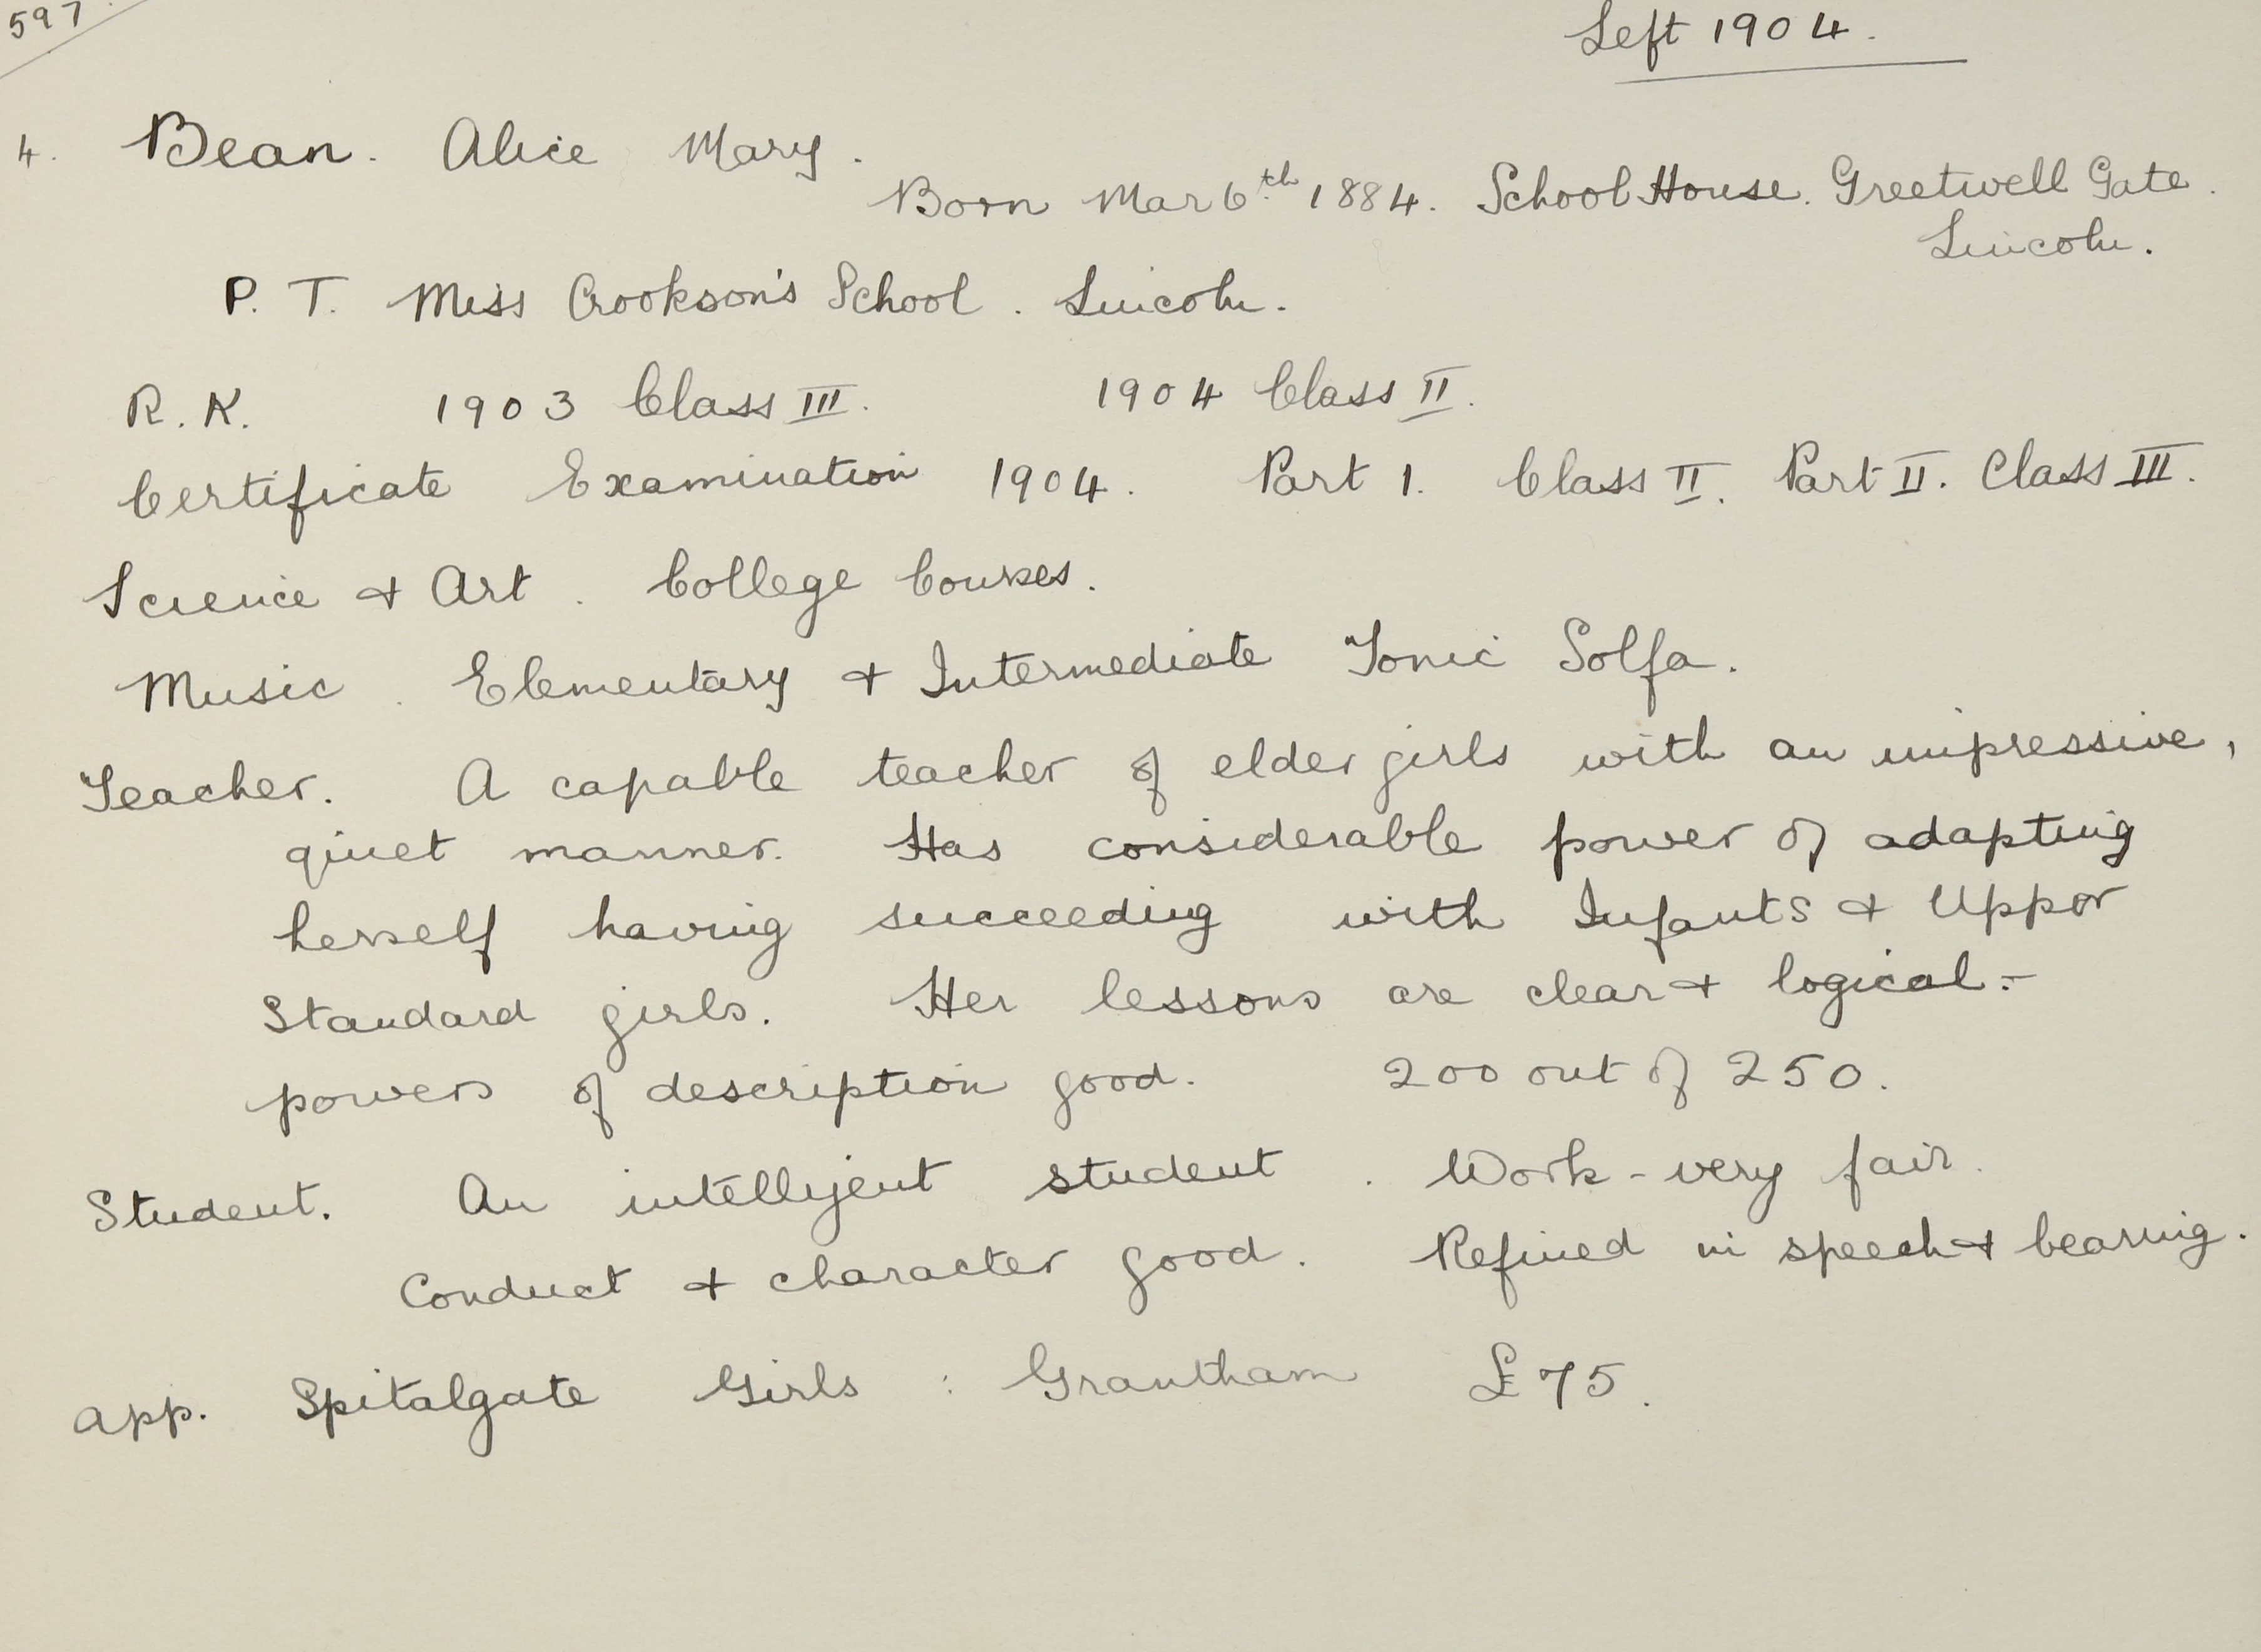 597
Left 1904.
4. Bean. Alice Mary.
Born Mar 6th 1884. School House. Greetwell Gate.
Lincoln.
P. T. Miss Crookson's School. Lincoln.
R. K. 1903 Class III. 1904 Class II.
Certificate Examination 1904. Part 1. Class II. Part II. Class III.
Science & Art. College Courses.
Music. Elementary & Intermediate Tonic Solfa.
Teacher. A capable teacher of elder girls with an impressive,
quiet manner. Has considerable power of adapting
herself having succeeding with Infants & Upper
Standard girls. Her lessons are clear & logical :-
powers of description good. 200 out of 250.
Student. An intelligent student. Work - very fair.
Conduct & character good. Refined in speech & bearing.
App. Spitalgate Girls : Grantham £75.